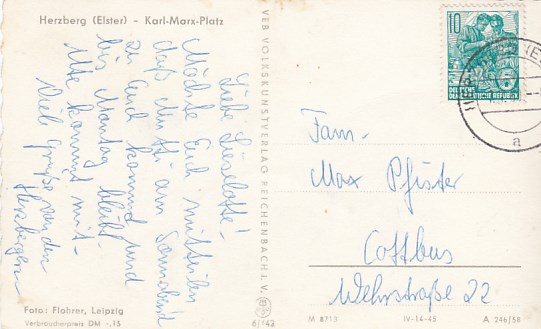 Herzberg (Elster) - Karl-Marx-Platz
Liebe Lieselotte!
Möchte Euch mitteilen
daß Mutti am Sonnabend
zu Euch kommt und
bis Montag bleibt.
Ute kommt mit.
Viele Grüße von den
Herzbergern
Foto: Flohrer, Leipzig
Verbraucherpreis DM -,15
VEB VOLKSKUNSTVERLAG REICHENBACH I. V.
6/142
10
DEUTSCHE
DEMOKRATISCHE REPUBLIK
a
Fam.
Max Pfister
Cottbus
Wehrstraße 22
M 8713 IV-14-45 A 246/58